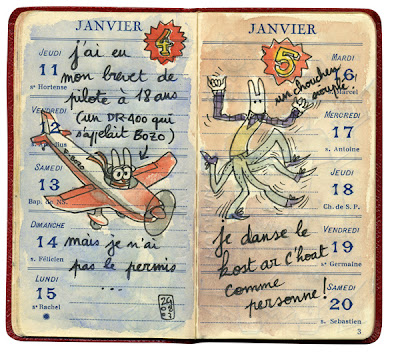 JANVIER
4
JEUDI
11
se Hortense
j'ai eu
mon brevet de
pilote à 18 ans
(un DR-400 qui
s'appelait BOZO)
VENDREDI
12
BOZO
SAMEDI
13
Bap. de NS.
DIMANCHE
14
s. Félicien
mais je n'ai
pas le permis
...
LUNDI
15
se Rachel
JANVIER
5
MARDI
16
s. Marcel
un chouchen
siouplé!
MERCREDI
17
s. Antoine
JEUDI
18
Ch. de S. P.
VENDREDI
19
s. Germaine
je danse le
kost ar c'hoat
comme
personne!
SAMEDI
20
s. Sébastien
3